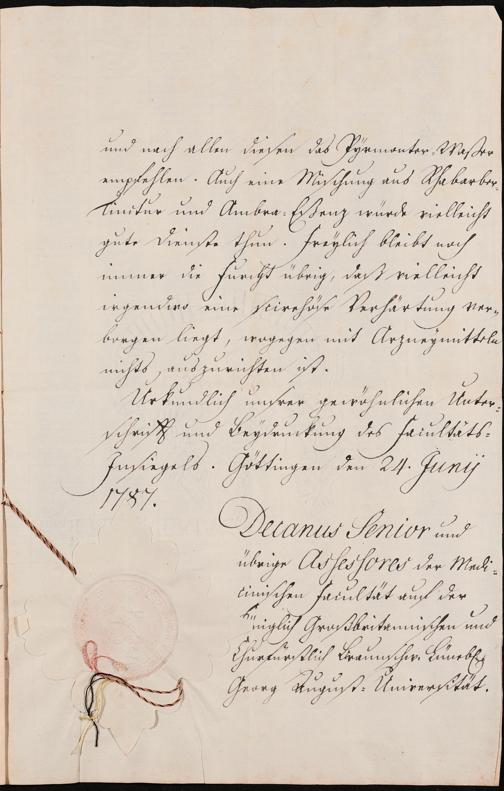 und nach allen diesen das Pyrmonter-Wasser
empfehlen. Auch eine Mischung aus Rhabarber-
tinctur und Ambra-Essenz würde vielleicht
gute Dienste thun. Freylich bleibt noch
immer die Furcht übrig, daß vielleicht
irgendwo eine scirrhöse Verhärtung ver-
borgen liegt, wogegen mit Arzneymitteln
nichts auszurichten ist.
Urkundlich unsrer gewöhnlichen Unter-
schrifft und Beydruckung des Facultäts-
Insiegels. Göttingen den 24. Junij
1787.
Decanus Senior und
übrige Assessores der Medi-
cinischen Facultät auf der
Königlich Großbritannischen und
Churfürstlich Braunschw. Lüneb.
Georg August-Universität.